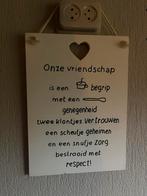 Onze vriendschap
is een begrip
met een
genegenheid
twee klontjes vertrouwen
een scheutje geheimen
en een snufje zorg
bestrooid met
respect!